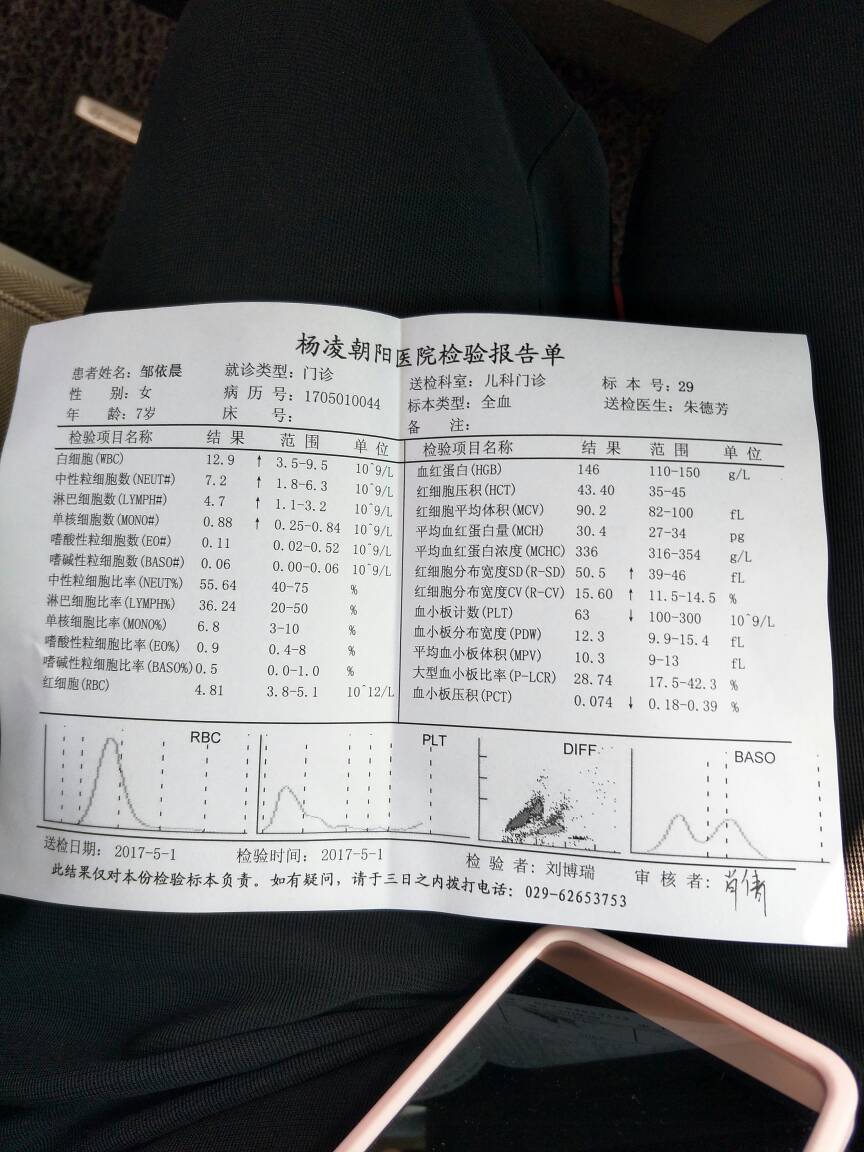 杨凌朝阳医院检验报告单
患者姓名：邹依晨 就诊类型：门诊 送检科室：儿科门诊 标 本 号：29
性 别：女 病 历 号：1705010044 标本类型：全血 送检医生：朱德芳
年 龄：7岁 床 号： 备 注：
检验项目名称 结 果 范 围 单 位
白细胞(WBC) 12.9 ↑ 3.5-9.5 10^9/L
中性粒细胞数(NEUT#) 7.2 ↑ 1.8-6.3 10^9/L
淋巴细胞数(LYMPH#) 4.7 ↑ 1.1-3.2 10^9/L
单核细胞数(MONO#) 0.88 ↑ 0.25-0.84 10^9/L
嗜酸性粒细胞数(EO#) 0.11 0.02-0.52 10^9/L
嗜碱性粒细胞数(BASO#) 0.06 0.00-0.06 10^9/L
中性粒细胞比率(NEUT%) 55.64 40-75 %
淋巴细胞比率(LYMPH%) 36.24 20-50 %
单核细胞比率(MONO%) 6.8 3-10 %
嗜酸性粒细胞比率(EO%) 0.9 0.4-8 %
嗜碱性粒细胞比率(BASO%) 0.5 0.0-1.0 %
红细胞(RBC) 4.81 3.8-5.1 10^12/L
检验项目名称 结 果 范 围 单 位
血红蛋白(HGB) 146 110-150 g/L
红细胞压积(HCT) 43.40 35-45
红细胞平均体积(MCV) 90.2 82-100 fL
平均血红蛋白量(MCH) 30.4 27-34 pg
平均血红蛋白浓度(MCHC) 336 316-354 g/L
红细胞分布宽度SD(R-SD) 50.5 ↑ 39-46 fL
红细胞分布宽度CV(R-CV) 15.60 ↑ 11.5-14.5 %
血小板计数(PLT) 63 ↓ 100-300 10^9/L
血小板分布宽度(PDW) 12.3 9.9-15.4 fL
平均血小板体积(MPV) 10.3 9-13 fL
大型血小板比率(P-LCR) 28.74 17.5-42.3 %
血小板压积(PCT) 0.074 ↓ 0.18-0.39 %
RBC PLT DIFF BASO
送检日期： 2017-5-1 检验时间： 2017-5-1 检 验 者：刘博瑞 审 核 者：
此结果仅对本份检验标本负责。如有疑问，请于三日之内拨打电话：029-62653753